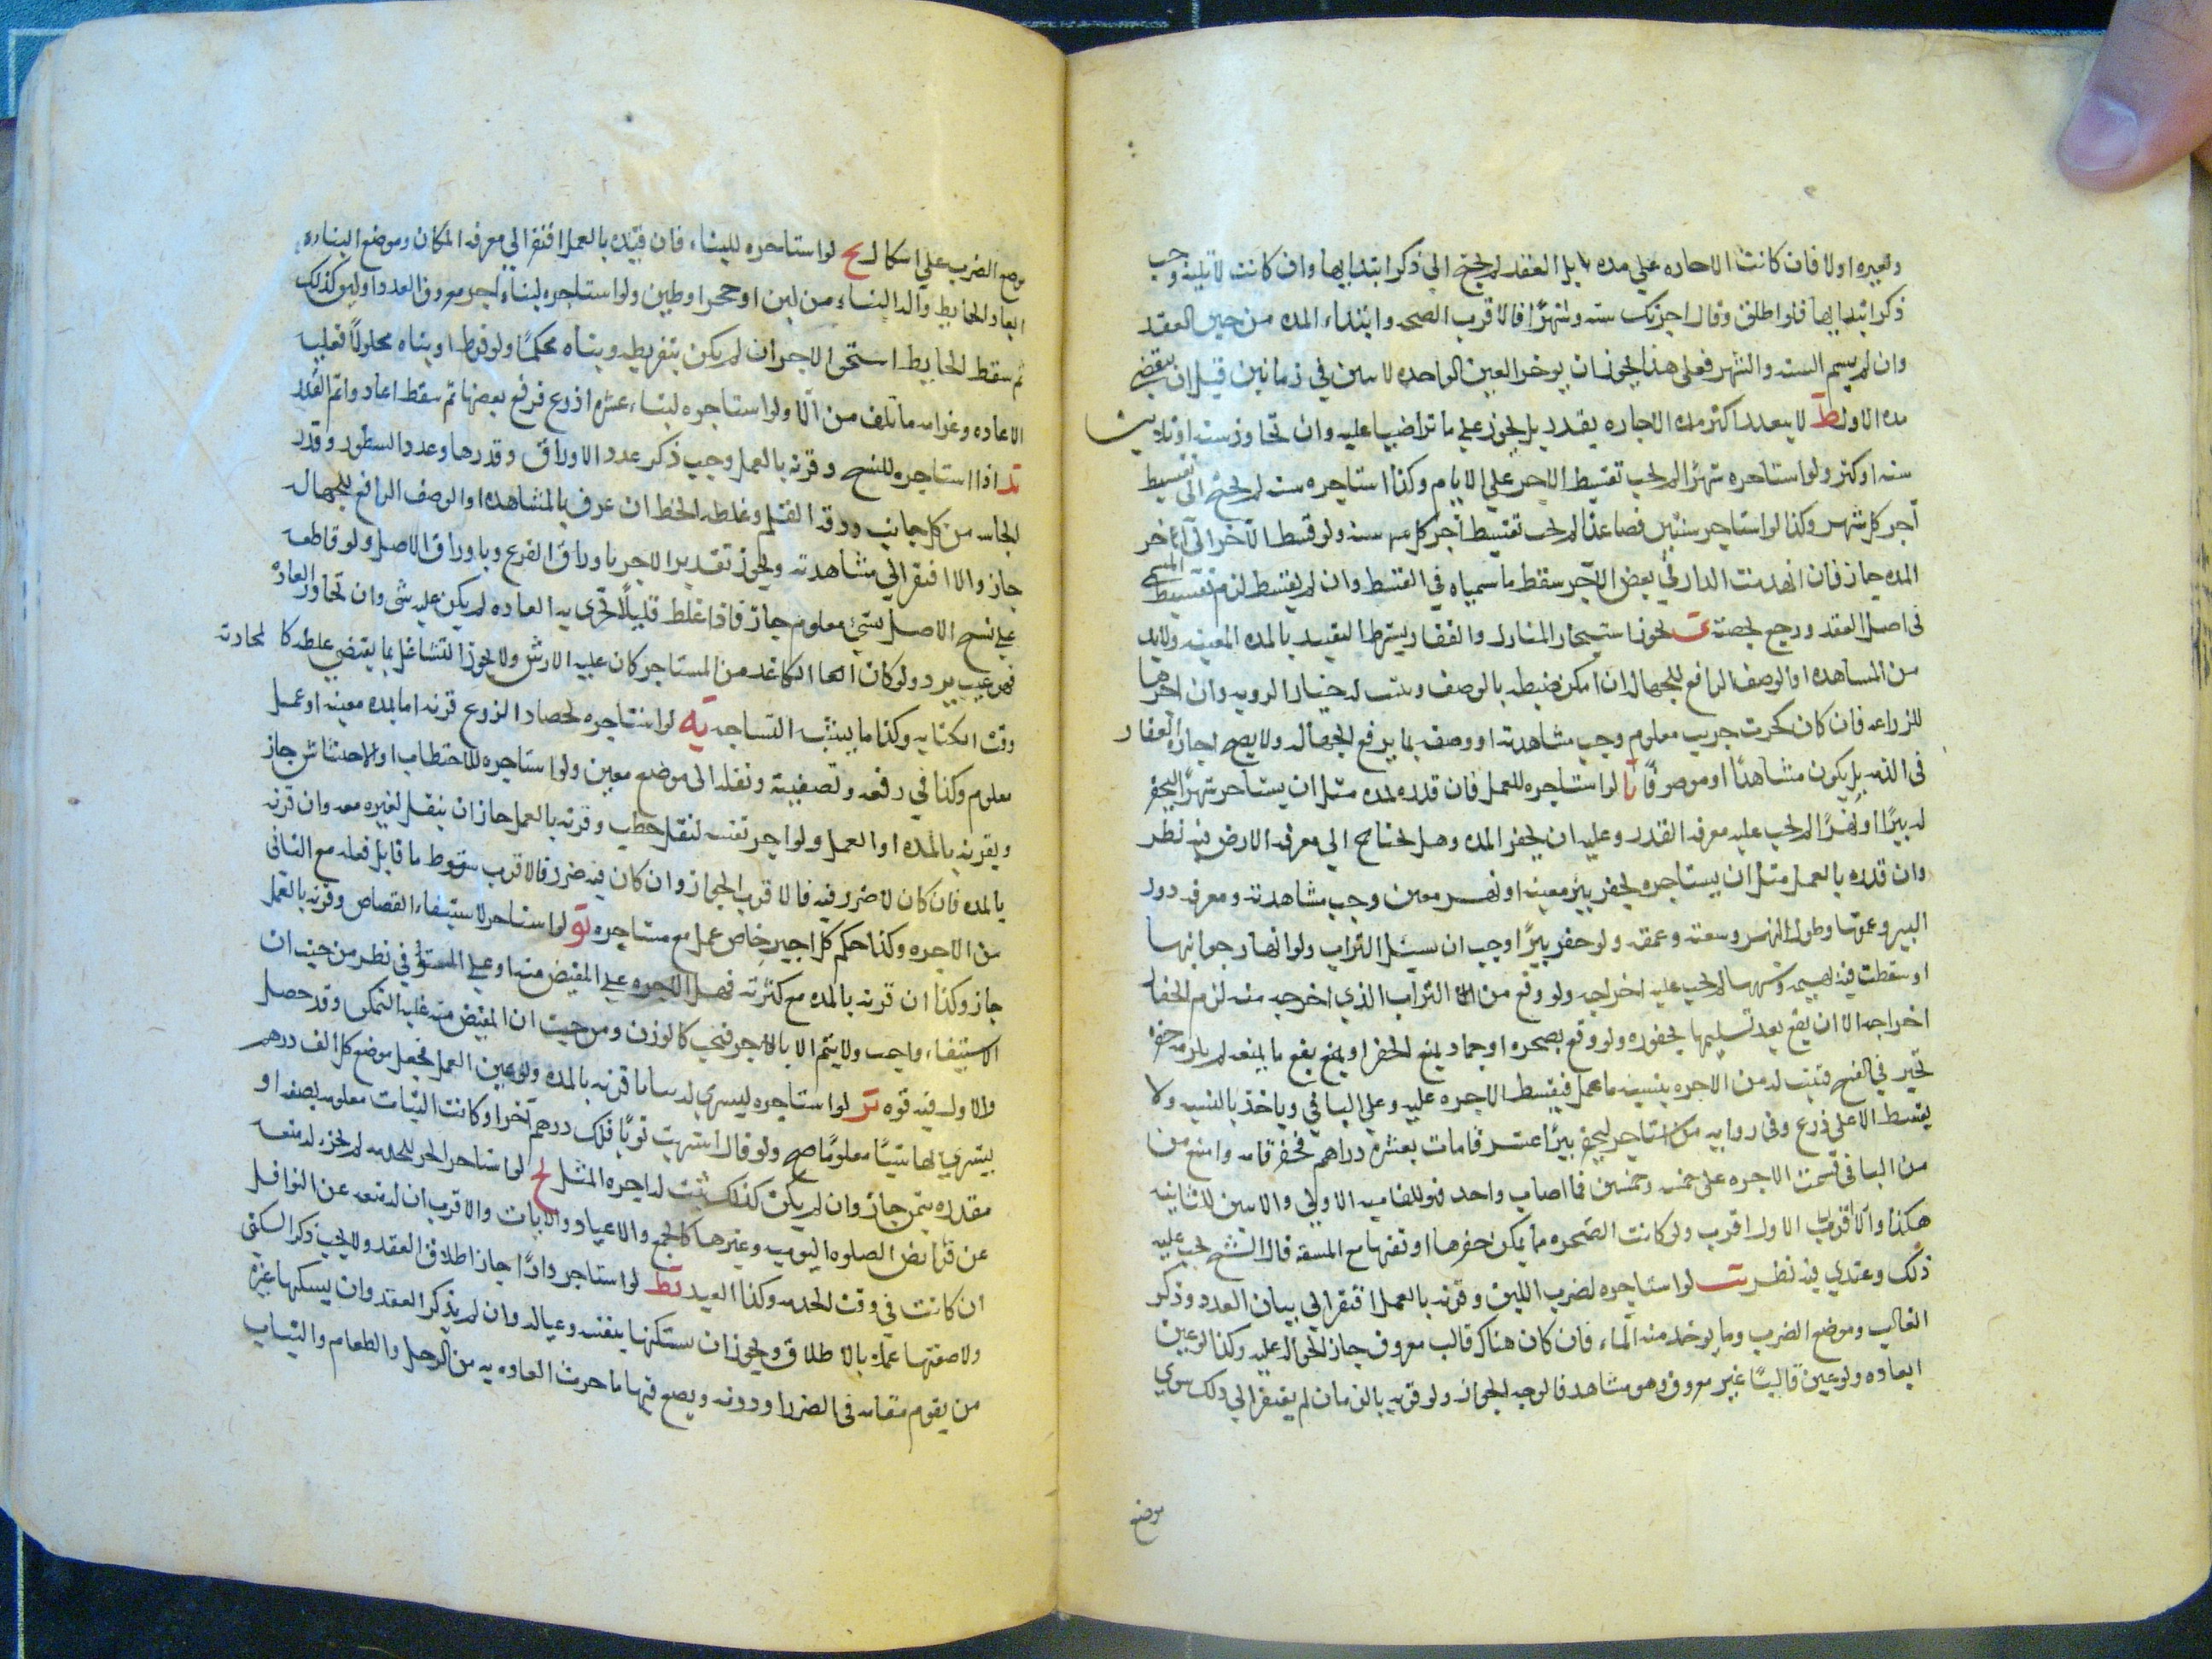 ولغيره اولا فان كانت الاجاره علي مده تلي العقد لم يحتج الي ذكر ابتدايها وان كانت لا تليه وجب
ذكر ابتدايها فلو اطلق وقال اجرتك سنه او شهرًا فالاقرب الصحه وابتداء المده من حين العقد
وان لم يسم السنه والشهر فعلي هذا يجوز ان يوجر العين الواحده لاثنين في زمانين قبل ان ينقضي
مده الاول ط لا يتقدر اكثر مده الاجاره بقدر بل يجوز علي ما تراضيا عليه وان تجاوزت ثلاثين
سنه او اكثر ولو استاجره شهرًا لم يجب تقسيط الاجر علي الايام وكذا استاجره سنه لم يحتج الي تقسيط
اجر كل شهر وكذا لو استاجر سنتين فصاعدا لم يجب تقسيط اجر كل سنه ولو قسط الاجر الي آخر
المده جاز فان انهدمت الدار في بعض الاجر سقط ما سمياه في القسط وان لم يقسط لزم تقسيط المسمي
في اصل العقد ورجع بحصته ى يجوز استيجار المنازل والعقار بشرط التقييد بالمده المعينه ولا بد
من المشاهده او الوصف الرافع للجهاله ان امكن ضبطه بالوصف ويثبت له خيار الرويه وان اجرها
للزراعه فان كان كحرث جريب معلوم وجب مشاهدته او وصفه بما يرفع الجهاله ولا يصح اجاره العقار
في الذمه بل يكون مشاهدًا او موصوفًا يا لو استاجره للعمل فان قدره بمده مثل ان يستاجر شهرًا ليحفر
له بيرًا او نهرًا لم يجب عليه معرفه القدر وعليه ان يحفر المده وهل يحتاج الي معرفه الارض فيه نظر
وان قدره بالعمل مثل ان يستاجره لحفر بير معينه او نهر معين وجب مشاهدته ومعرفه دور
البير وعمقها وطول النهر وسعته وعمقه ولو حفر بيرًا وجب ان يشيل التراب ولو انهار جوانبها
او سقطت فيه بهيمه وشبهها لم يجب عليه اخراجه ولو وقع من التراب الذي اخرجه منه لزم الحفار
اخراجه الا ان يقع بعد تسليمها محفوره ولو وقع بصخره او جماد يمنع الحفر او يمنع بقع ما يمنعه لم يلزمه حفره
تخير في الفسخ فيثبت له من الاجره بنسبه ما عمل فيقسط الاجره عليه وعلي الباقي وياخذ بالنسبه ولا
يقسط الا علي ذرع وفي روايه من استاجر ليحفر بيرًا عشر قامات بعشره دراهم فحفر قامه وامتنع من
من الباقي قسمت الاجره علي خمسه وخمسين فما اصاب واحد فهو للقامه الاولي والاثنين للثانيه
هكذا والاقرب الاول اقرب ولو كانت الصخره مما يمكن حفرها او نقبها مع المشقه قال الشيخ يجب عليه
ذلك وعندي فيه نظر يب لو استاجره لضرب اللبن وقرنه بالعمل افتقر الي بيان العدد وذكر
القالب وموضع الضرب وما يوخذ منه الماء فان كان هناك قالب معروف جاز الحواله عليه وكذا لو عين
ابعاده ولو عين قالبًا غير معروف وهو مشاهد فالوجه الجواز ولو قرنه بالزمان لم يفتقر الي ذلك سوي
موضع
موضع الضرب علي اشكال يج لو استاجره للبناء فان قيده بالعمل افتقر الي معرفه المكان وموضع البناء و
ابعاد الحايط وآله البناء من لبن او حجر او طين ولو استاجره لبناء اجر معروف العدد او لبن كذلك
ثم سقط الحايط استحق الاجر ان لم يكن بتفريطه وبناه محكمًا ولو فرط او بناه محلولًا فعليه
الاعاده وغرامه ما تلف من الآلا ولو استاجره لبناء عشره اذرع فرفع بعضها ثم سقط اعاد واتم القدر
يد اذا استاجره للنسخ وقرنه بالعمل وجب ذكر عدد الاوراق وقدرها وعدد السطور وقدر
الحاشيه من كل جانب ودقه القلم وغلظه الخط ان عرف بالمشاهده او الوصف الرافع للجهاله
جاز والا افتقر الي مشاهدته ويجوز تقدير الاجر باوراق الفرع وباوراق الاصل ولو قاطعه
علي نسخ الاصل بشيء معلوم جاز فاذا غلط قليلًا تجري به العاده لم يكن عليه شي وان تجاوز العاده
فهو عيب يرد ولو كان الكاغد من المستاجر كان عليه الارش ولا يجوز التشاغل بما يقتضي غلطه كالمحادثه
وقت الكتابه وكذا ما يشبه النساجه يه لو استاجره لحصاد الزرع قرنه اما بمده معينه او عمل
معلوم وكذا في رفعه وتصفيته ونقله الي موضع معين ولو استاجره للاحتطاب او الاحتشاش جاز
ويقرنه بالمده او العمل ولو اجر نفسه لنقل حطب وقرنه بالعمل جاز ان ينقل لغيره معه وان قرنه
بالمده فان كان لا ضرر فيه فالاقرب الجواز وان كان فيه ضرر فالاقرب سقوط ما قابل فعله مع الثاني
من الاجره وكذا حكم كل اجير خاص عمل مع مستاجره يو لو استاجر لاستيفاء القصاص وقرنه بالعمل
جاز وكذا ان قرنه بالمده مع كثرته فهل الاجره علي المقتص منه او علي المستوفي نظر من حيث ان
الاستيفاء واجب ولا يتم الا بالاجر فيجب كالوزن ومن حيث ان المقتص منه عليه التمكن وقد حصل
والاول فيه قوه يز لو استاجره ليشتري له ثيابا قرنه بالمده ولو عين العمل فجعل موضع كل الف درهم
يشتري لها شيئًا معلومًا صح ولو قال اشتريت ثوبًا فلك درهم آخر او كانت الثياب معلومه بصفه او
مقدره بثمن جاز وان لم يكن كذلك ثبت له اجره المثل يح لو استاجر الحر للخدمه لم يجز له منعه
عن فرايض الصلوه اليوميه وغيرها كالجمع والاعياد والآيات والاقرب ان له منعه عن النوافل
ان كانت في وقت الخدمه وكذا العبد يط لو استاجر دارًا جاز اطلاق العقد ولا يجب ذكر السكني
ولا صفتها عملا بالاطلاق ويجوز ان يسكنها بنفسه وعياله وان لم يذكر العقد وان يسكنها غيره
من يقوم مقامه في الضرر او دونه ويضع فيها ما جرت العاده به من الرحل والطعام والثياب